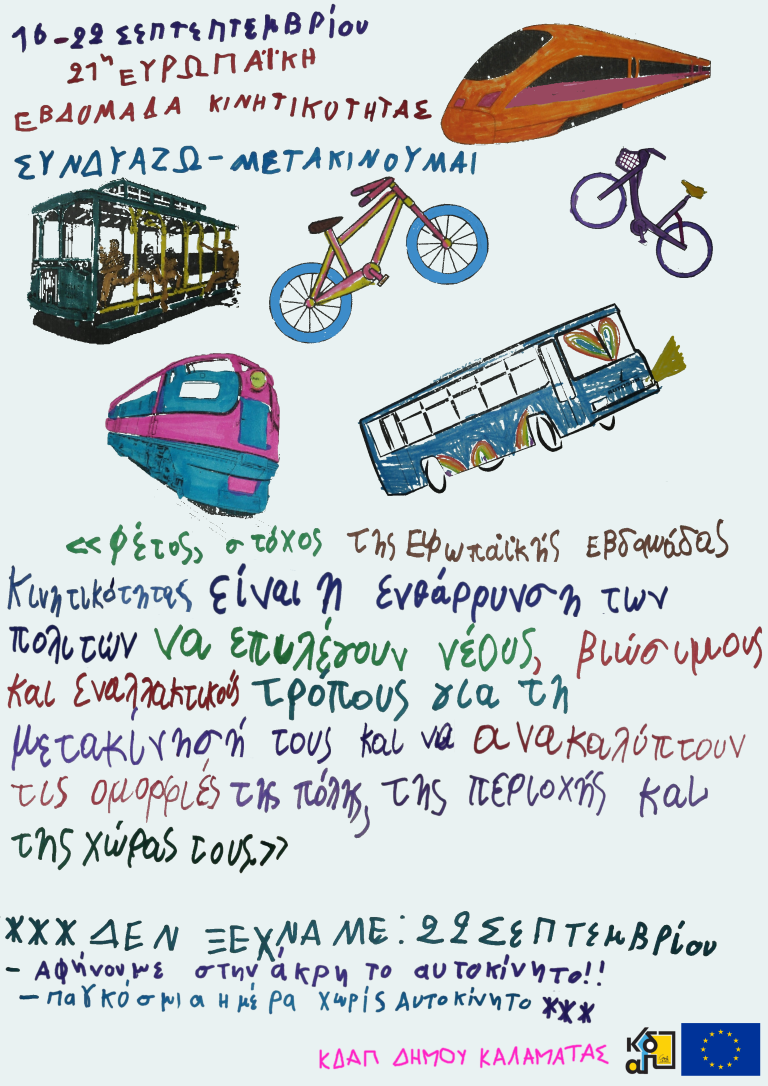 16-22 ΣΕΠΤΕΠΤΕΜΒΡίου
21η ΕΥΡΩΠΑΪΚΗ
ΕΒΔΟΜΑΔΑ ΚΙΝΗΤΙΚΟΤΗΤΑΣ
ΣΥΝΔΥΑΖΩ-ΜΕΤΑΚΙΝΟΥΜΑΙ
«φέτος, στόχος της Εφωπαϊκής εβδομάδας
Κινητικότητας είναι η ενθάρρυνση των
πολιτών να επιλέγουν νέους, βιώσιμους
και εναλλακτικούς τρόπους για τη
μετακίνησή τους και να ανακαλύπτουν
τις ομορφιές της πόλης, της περιοχής και
της χώρας τους.»
*** ΔΕΝ ΞΕΧΝΑΜΕ: 22 ΣΕΠΤΕΜΒΡίου
- Αφήνουμε στην άκρη το αυτοκίνητο!!
- Παγκόσμια Ημέρα χωρίς Αυτοκίνητο ***
ΚΔΑΠ ΔΗΜΟΥ ΚΑΛΑΜΑΤΑΣ ΚΔΑΠ